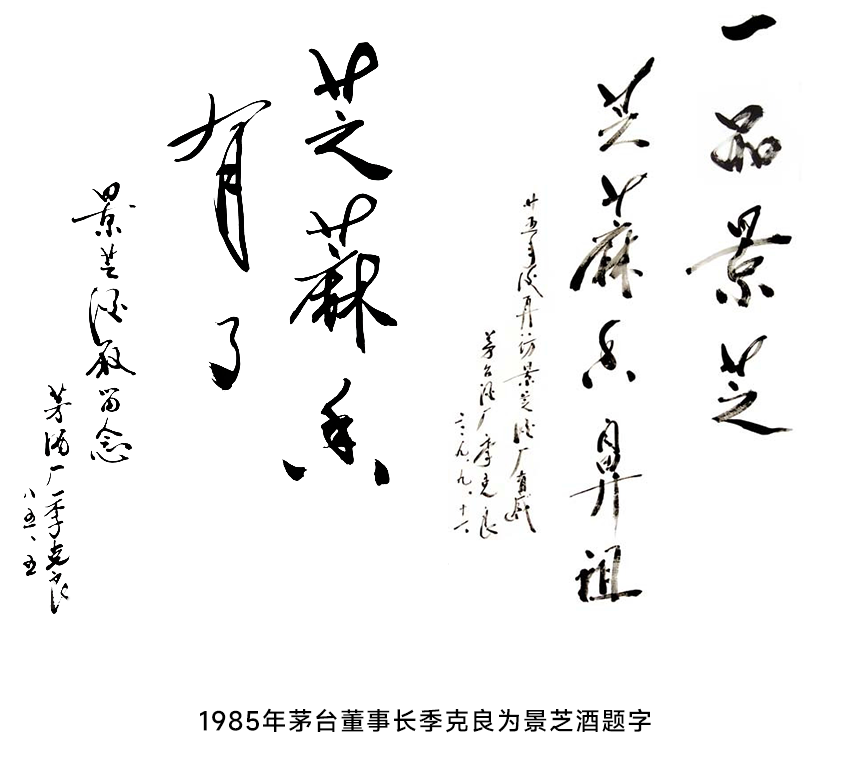 一品景芝
芝蔴香鼻祖
廿五年後再访景芝酒厂
茅台酒厂季克良
芝蔴香
有了
景芝酒廠留念
茅酒厂季克良
八五、五
1985年茅台董事长季克良为景芝酒题字